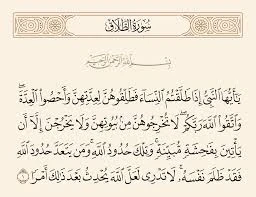 سُورَةُ الطَّلَاقِ
بِسْمِ اللَّهِ الرَّحْمَٰنِ الرَّحِيمِ
يَٰٓأَيُّهَا ٱلنَّبِىُّ إِذَا طَلَّقْتُمُ ٱلنِّسَآءَ فَطَلِّقُوهُنَّ لِعِدَّتِهِنَّ وَأَحْصُوا۟ ٱلْعِدَّةَ ۖ
وَٱتَّقُوا۟ ٱللَّهَ رَبَّكُمْ ۖ لَا تُخْرِجُوهُنَّ مِنۢ بُيُوتِهِنَّ وَلَا يَخْرُجْنَ إِلَّآ أَن
يَأْتِينَ بِفَٰحِشَةٍ مُّبَيِّنَةٍ ۚ وَتِلْكَ حُدُودُ ٱللَّهِ ۚ وَمَن يَتَعَدَّ حُدُودَ ٱللَّهِ
فَقَدْ ظَلَمَ نَفْسَهُۥ ۚ لَا تَدْرِى لَعَلَّ ٱللَّهَ يُحْدِثُ بَعْدَ ذَٰلِكَ أَمْرًا ١